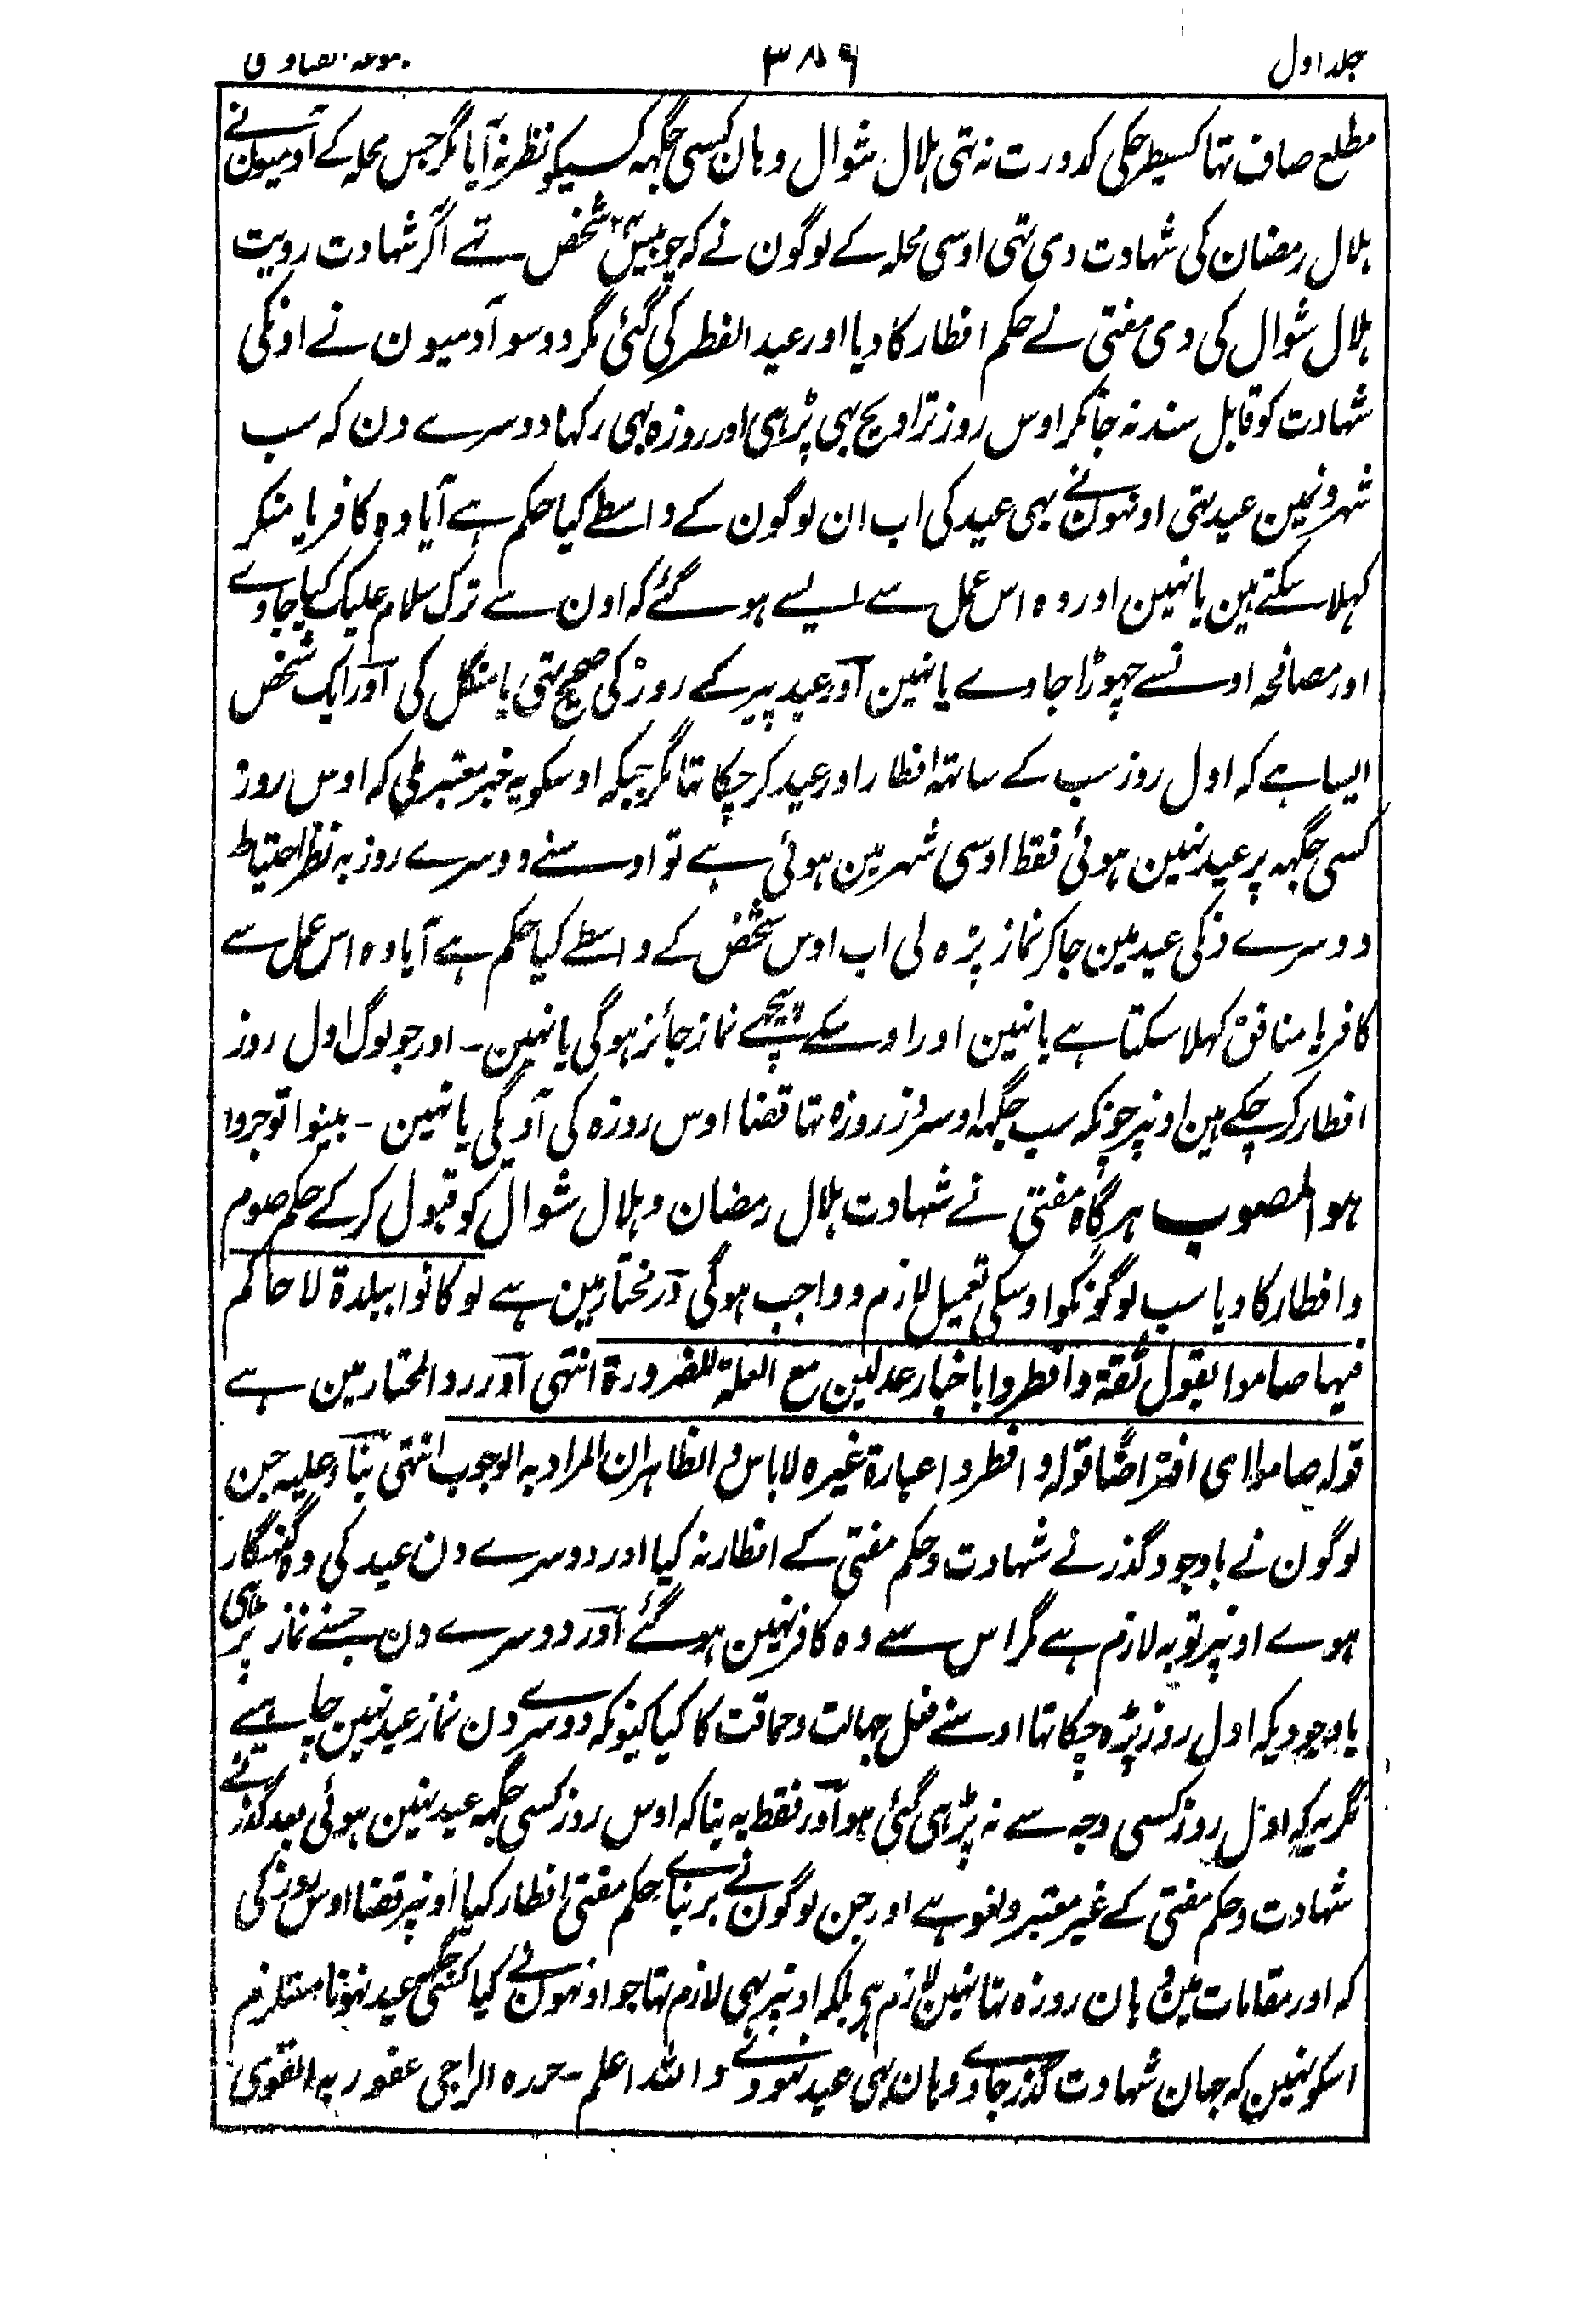 جلد اول
۳۸۶
مجموعہ الفتاوی
مطلع صاف تہا کسیطرحکی کدورت نہ تہی ہلال شوال وہان کسی جگہہ کسیکو نظر نہ آیا مگر جس محلہ کے آدمیون نے
ہلال رمضان کی شہادت دی تہی اوسی محلہ کے لوگون نے کہ چوبیس ۲۴ شخص تہے اگر شہادت رویت
ہلال شوال کی دی مفتی نے حکم افطار کا دیا اور عید الفطر کی گئی مگر دو سو آدمیون نے اونکی
شہادت کو قابل سند نہ جانکر اوس روز تراویح بہی پڑہی اور روزہ بہی رکہا دوسرے دن کہ سب
شہرونمین عید تہی اونہون نے بہی عید کی اب ان لوگون کے واسطے کیا حکم ہے آیا وہ کافر یا منکر
کہلا سکتے ہین یا نہین اور وہ اس عمل سے ایسے ہو گئے کہ اون سے ترک سلام علیک کیا جاوے
اور مصافحہ اونسے چہوڑا جاوے یا نہین اور عید پیر کے روز کی صحیح تہی یا منگل کی اور ایک شخص
ایسا ہے کہ اول روز سب کے ساتہہ افطار اور عید کر چکا تہا مگر جبکہ اوسکو یہ خبر معتبر ملی کہ اوس روز
کسی جگہہ پر عید نہین ہوئی فقط اوسی شہر مین ہوئی ہے تو اوسنے دوسرے روز بہ نظر احتیاط
دوسرے دنکی عید مین جا کر نماز پڑہ لی اب اوس شخص کے واسطے کیا حکم ہے آیا وہ اس عمل سے
کافر یا منافق کہلا سکتا ہے یا نہین اور اوسکے پیچہے نماز جائز ہو گی یا نہین - اور جو لوگ اول روز
افطار کر چکے ہین اونپر چونکہ سب جگہہ اوسروز روزہ تہا قضا اوس روزہ کی آویگی یا نہین - بینوا توجروا
ہو المصوب ہر گاہ مفتی نے شہادت ہلال رمضان و ہلال شوال کو قبول کر کے حکم صوم
و افطار کا دیا سب لوگونکو اوسکی تعمیل لازم و واجب ہو گی در مختار مین ہے لو کانوا ببلدة لا حاکم
فیہا صاموا بقول ثقة وافطروا باخبار عدلین مع العلة للضرورة انتہی اور رد المحتار مین ہے
قولہ صاموا ای افتراضا قولہ و افطروا عبارة غیرہ لا باس و الظاہر ان المراد بہ الوجوب انتہی بناءً علیہ جن
لوگون نے باوجود گذرنے شہادت و حکم مفتی کے افطار نہ کیا اور دوسرے دن عید کی وہ گنہگار
ہوے اونپر توبہ لازم ہے مگر اس سے وہ کافر نہین ہو گئے اور دوسرے دن جسنے نماز پڑہی
باوجودیکہ اول روز پڑہ چکا تہا اوسنے فعل جہالت و حماقت کا کیا کیونکہ دوسرے دن نماز عید نہین چاہیے
مگر یہ کہ اول روز کسی وجہ سے نہ پڑہی گئی ہو اور فقط یہ بنا کہ اوس روز کسی جگہہ عید نہین ہوئی بعد گذرنے
شہادت و حکم مفتی کے غیر معتبر و لغو ہے اور جن لوگون نے بر بنائے حکم مفتی افطار کیا اونپر قضا اوس روز کی
کہ اور مقامات مین وہان روزہ تہا نہین لازم ہی بلکہ اونپر یہی لازم تہا جو اونہون نے کیا کسی جگہہ عید نہونا مستلزم
اسکو نہین کہ جہان شہادت گذر جاوے وہان بہی عید نہووے واللہ اعلم - حررہ الراجی عفو ربہ القوی